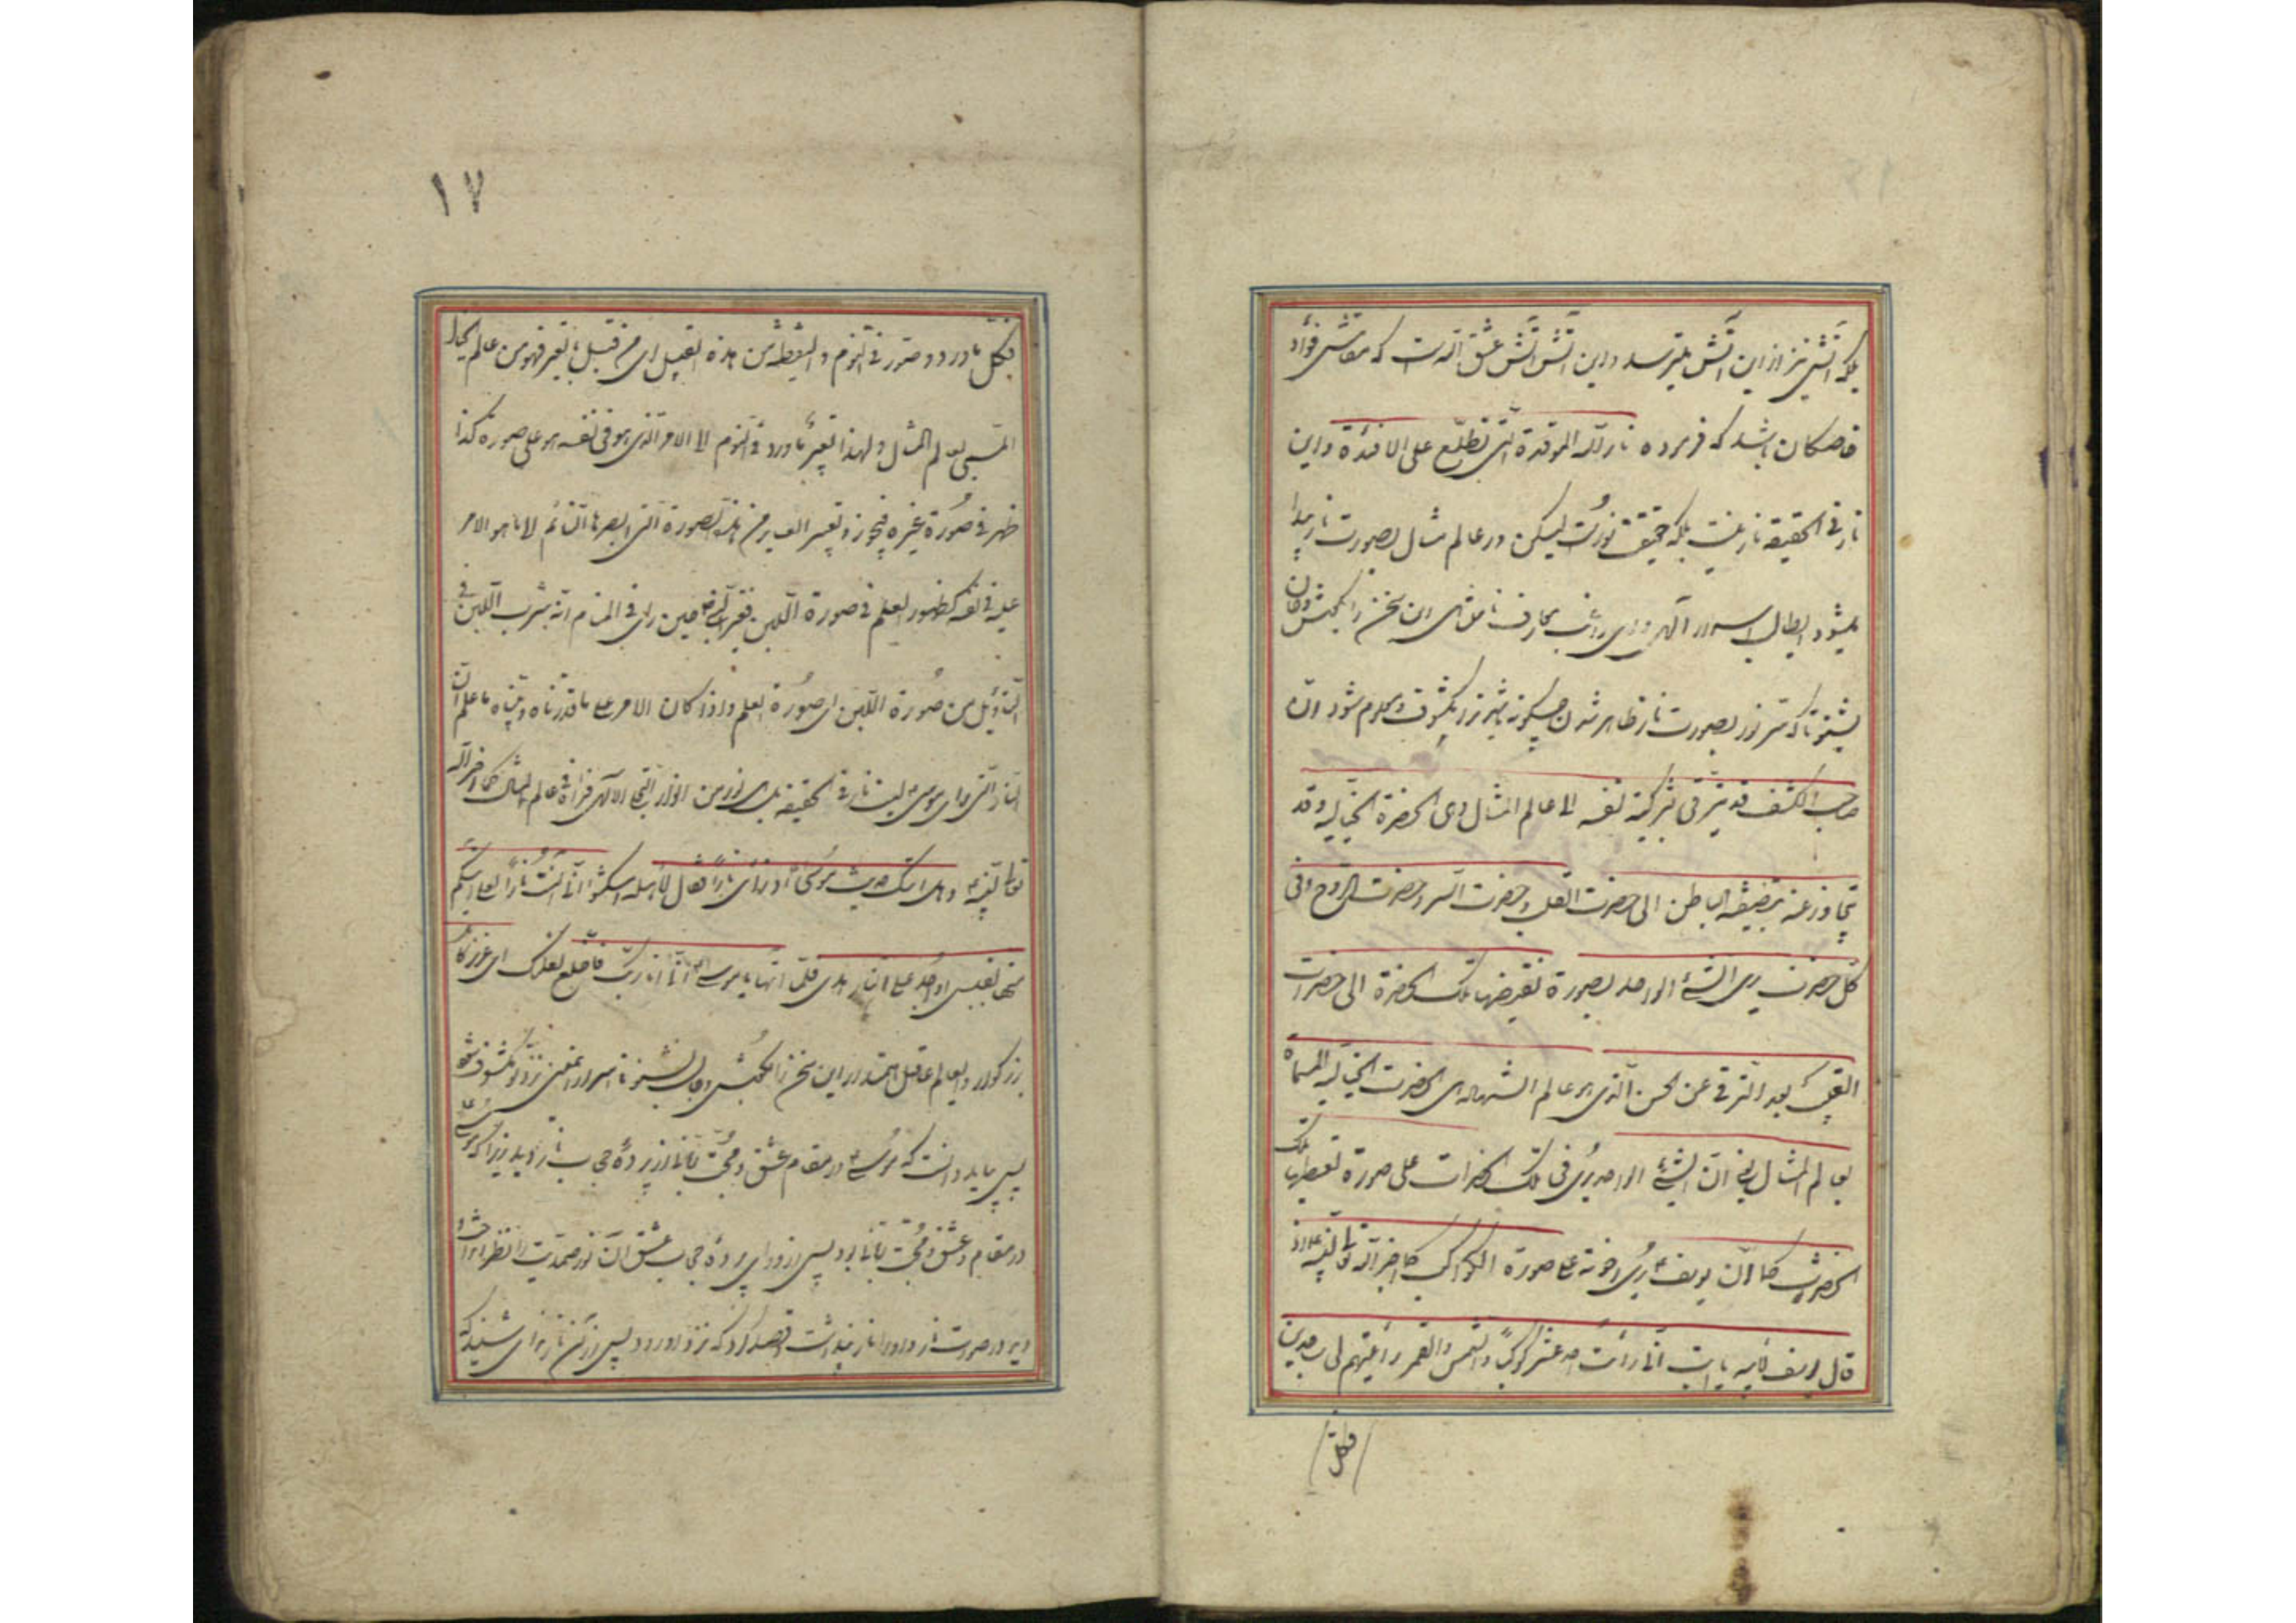 بلکه آتش نیز از این آتش میترسد و این آتش آتش عشق الله است که مقامش فؤاد
خاصگان باشد که فرموده نار الله الموقدة التی تطلع علی الافئدة و این
نار فی الحقیقة نار نیست بلکه حقیقتش نورست لیکن در عالم مثال بصورت نار پیدا
میشود ای طالب اسرار الهی و ای بمعارف نامتناهی این سخن را بگوش جان
بشنو تا که سر نور بصورت نار ظاهر شدن چگونه باشد نزد تو مکشوف و معلوم شود ان
صاحب الکشف قد یترقی بتزکیة نفسه الی عالم المثال وهی الحضرة الخیالیة وقد
یتجاوز عنه بتصفیة الباطن الی حضرت القلب و حضرت السر و حضرت الروح وفی
کل حضرت یری الشیء الواحد بصورة تقتضیها تلک الحضرة الی حضرات
القلب بعد الترقی عن الحس الذی هو عالم الشهادة ای الحضرت الخیالیة المسماة
بعالم المثال یعنی ان الشیء الواحد یری فی تلک الحضرات علی صورة تعطیها تلک
الحضرت کما ان یوسف ع رای اخوته علی صورة الکواکب کما اخبر الله تعالی لنبیه اذ
قال یوسف لابیه یا ابت انی رأیت احد عشر کوکبا والشمس والقمر رأیتهم لی ساجدین
فکل
۱۷
فکل ما ورد و صور فی النوم و الیقظة من هذه القبیل ای من قبیل ما یعبر فهو من عالم الخیال
المسمی بعالم المثال و لهذا یعبر ما ورد فی النوم الی الامر الذی هو فی نفسه هو علی صورة کذا
ظهر فی صورة غیره فیجوز و تعبیر العابر من هذه الصورة التی ابصرها النائم الی ما هو الامر
علیه فی نفسه کظهور العلم فی صورة اللبن فعبر النبی ع حین رای فی المنام انه یشرب اللبن فی
التأویل من صورة اللبن الی صورة العلم و اذا کان الامر علی ما قدرناه و بیناه فاعلم ان
النار التی رای موسی ع لیست نار فی الحقیقة بل هی نور من انوار التجلی الالهی فرآه فی عالم المثال کما اخبر الله
تعالی لنبیه ع و هل اتیک حدیث موسی اذ رأی نارا فقال لاهله امکثوا انی آنست نارا لعلی آتیکم
منها بقبس او اجد علی النار هدی فلما اتیها نودی یا موسی انی انا ربک فاخلع نعلیک ای عزیز
بزرگوار و عالم عاقل این سخن را بگوش جان بشنو تا اسرار معنی نزد تو مکشوف شود
پس باید دانست که موسی ع در مقام عشق و محبت از پردهٔ حجاب نار دید زیرا که موسی ع
در مقام عشق و محبت بود پس از ورای پردهٔ حجاب عشق آن نور صمدیت را نظر انداخت
دید در صورت نار و او را نار پنداشت و قصد کرد که نزد او رود پس از آن نار ندای شنید که